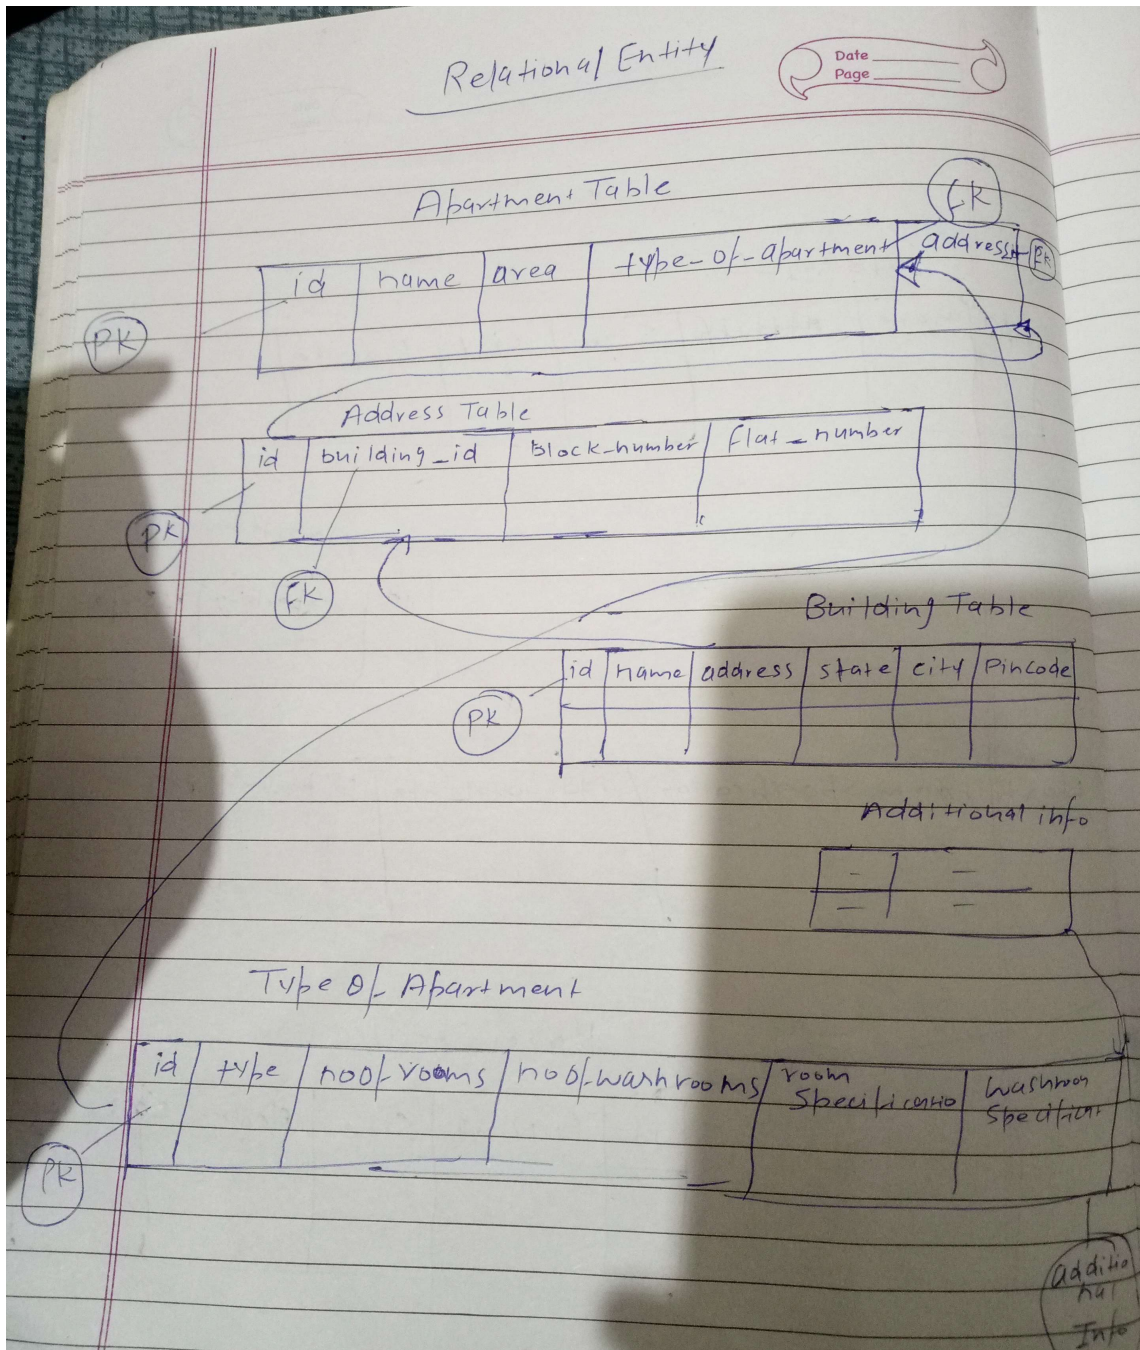 Relational Entity
Date
Page
Apartment Table
FK
id name area type-of-apartment address FK
PK
Address Table
id building_id Block-number flat_number
PK
FK
Building Table
id name address state city Pincode
PK
Additional info
Type Of Apartment
id type noof-rooms noof-washrooms room
Specificatio washroom
Specification
PK
Additio
nal
Info